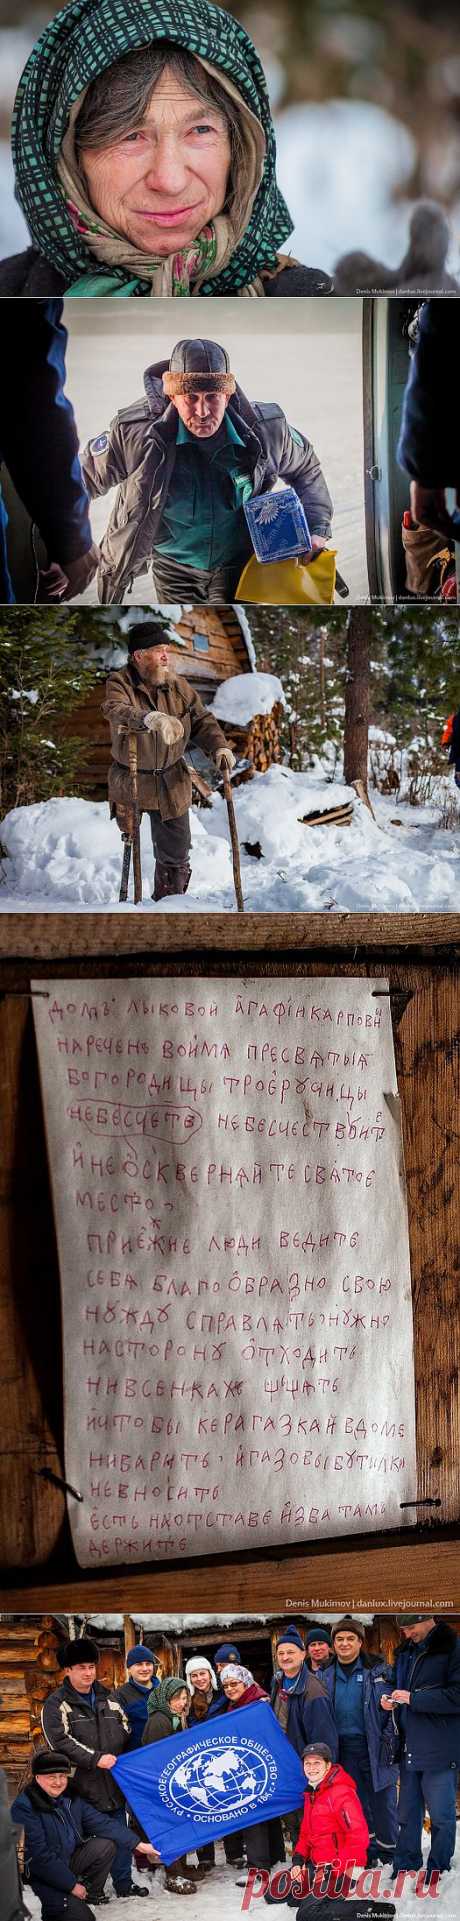 Denis Mukimov | danlux.livejournal.com
Denis Mukimov | danlux.livejournal.com
Denis Mukimov | danlux.livejournal.com
домъ лыковой агафiи карповн
нареченъ воимѧ пресвѧтыѧ
богородицы троєручицы
небесчетв небесчествуит
и не осквернѧйте свѧтоє
место,
приєжиє люди ведите
себѧ благообразно свою
нужду справлѧть, нужно
насторону отходить
нивсенкахъ
ичтобы керагазкай в доме
ниварить, и газовы бутилки
невносить
єсть наотставе изба тамъ
держите
Denis Mukimov | danlux.livejournal.com
РУССКОЕ ГЕОГРАФИЧЕСКОЕ ОБЩЕСТВО
• ОСНОВАНО В 1845 г. •
Denis Mukimov | danlux.livejournal.com
postila.ru